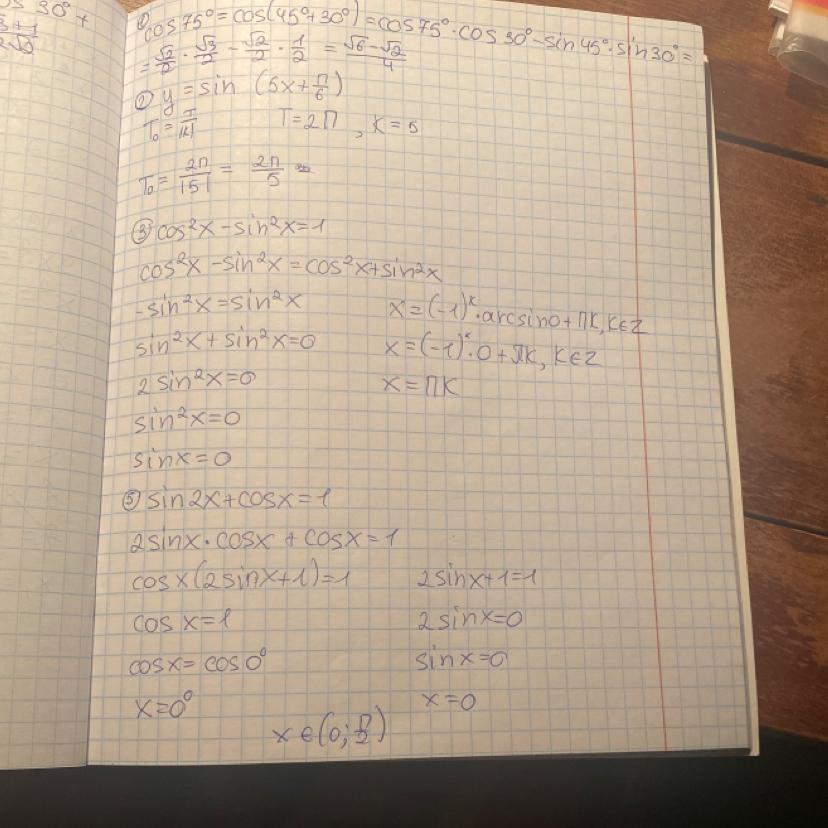 os 30° +
3+1
2√2
① cos 75° = cos(45°+30°) = cos 75° · cos 30° - sin 45° · sin 30° =
= √2/2 · √3/2 - √2/2 · 1/2 = (√6-√2)/4
② y = sin (5x + π/6)
T₀ = T/|k| T = 2π , k = 5
T₀ = 2π/|5| = 2π/5
③ cos²x - sin²x = 1
cos²x - sin²x = cos²x + sin²x
-sin²x = sin²x
sin²x + sin²x = 0
2 sin²x = 0
sin²x = 0
sinx = 0
x = (-1)ᵏ · arcsin0 + πk, k∈Z
x = (-1)ᵏ · 0 + πk, k∈Z
x = πk
⑤ sin2x + cosx = 1
2sinx · cosx + cosx = 1
cosx(2sinx+1) = 1
cos x = 1
cosx = cos 0°
x = 0°
2sinx+1=1
2 sinx = 0
sinx = 0
x = 0
x ∈ (0; π/2)